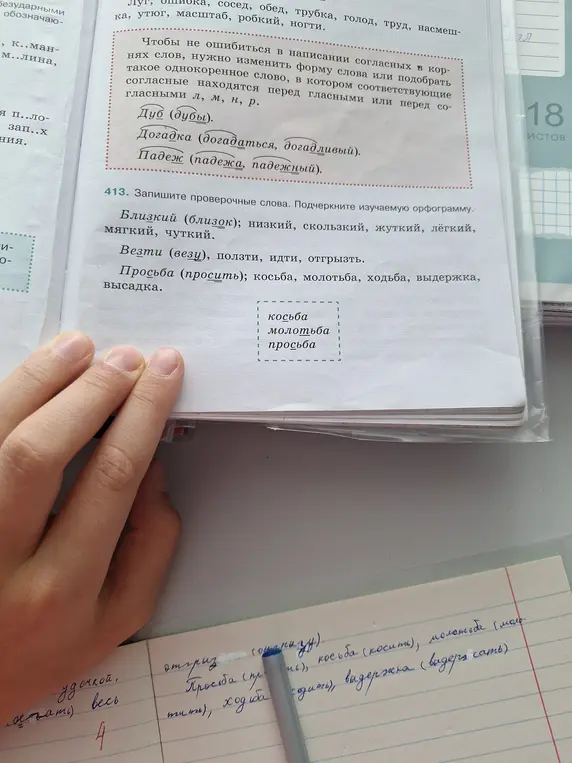 безударными
обозначаю-
к..ман-
м..лина,
п..ло-
зап..х
ния.
и-
о-
Луг, ошибка, сосед, обед, трубка, голод, труд, насмеш-
ка, утюг, масштаб, робкий, ногти.
Чтобы не ошибиться в написании согласных в кор-
нях слов, нужно изменить форму слова или подобрать
такое однокоренное слово, в котором соответствующие
согласные находятся перед гласными или перед со-
гласными л, м, н, р.
Дуб (дубы).
Догадка (догадаться, догадливый).
Падеж (падежа, падежный).
413. Запишите проверочные слова. Подчеркните изучаемую орфограмму.
Близкий (близок); низкий, скользкий, жуткий, лёгкий,
мягкий, чуткий.
Везти (везу), ползти, идти, отгрызть.
Просьба (просить); косьба, молотьба, ходьба, выдержка,
высадка.
косьба
молотьба
просьба
18
истов
удочкой,
весь
4
Просьба косьба (косить), молотьба (моло-
тить), ходьба выдержка